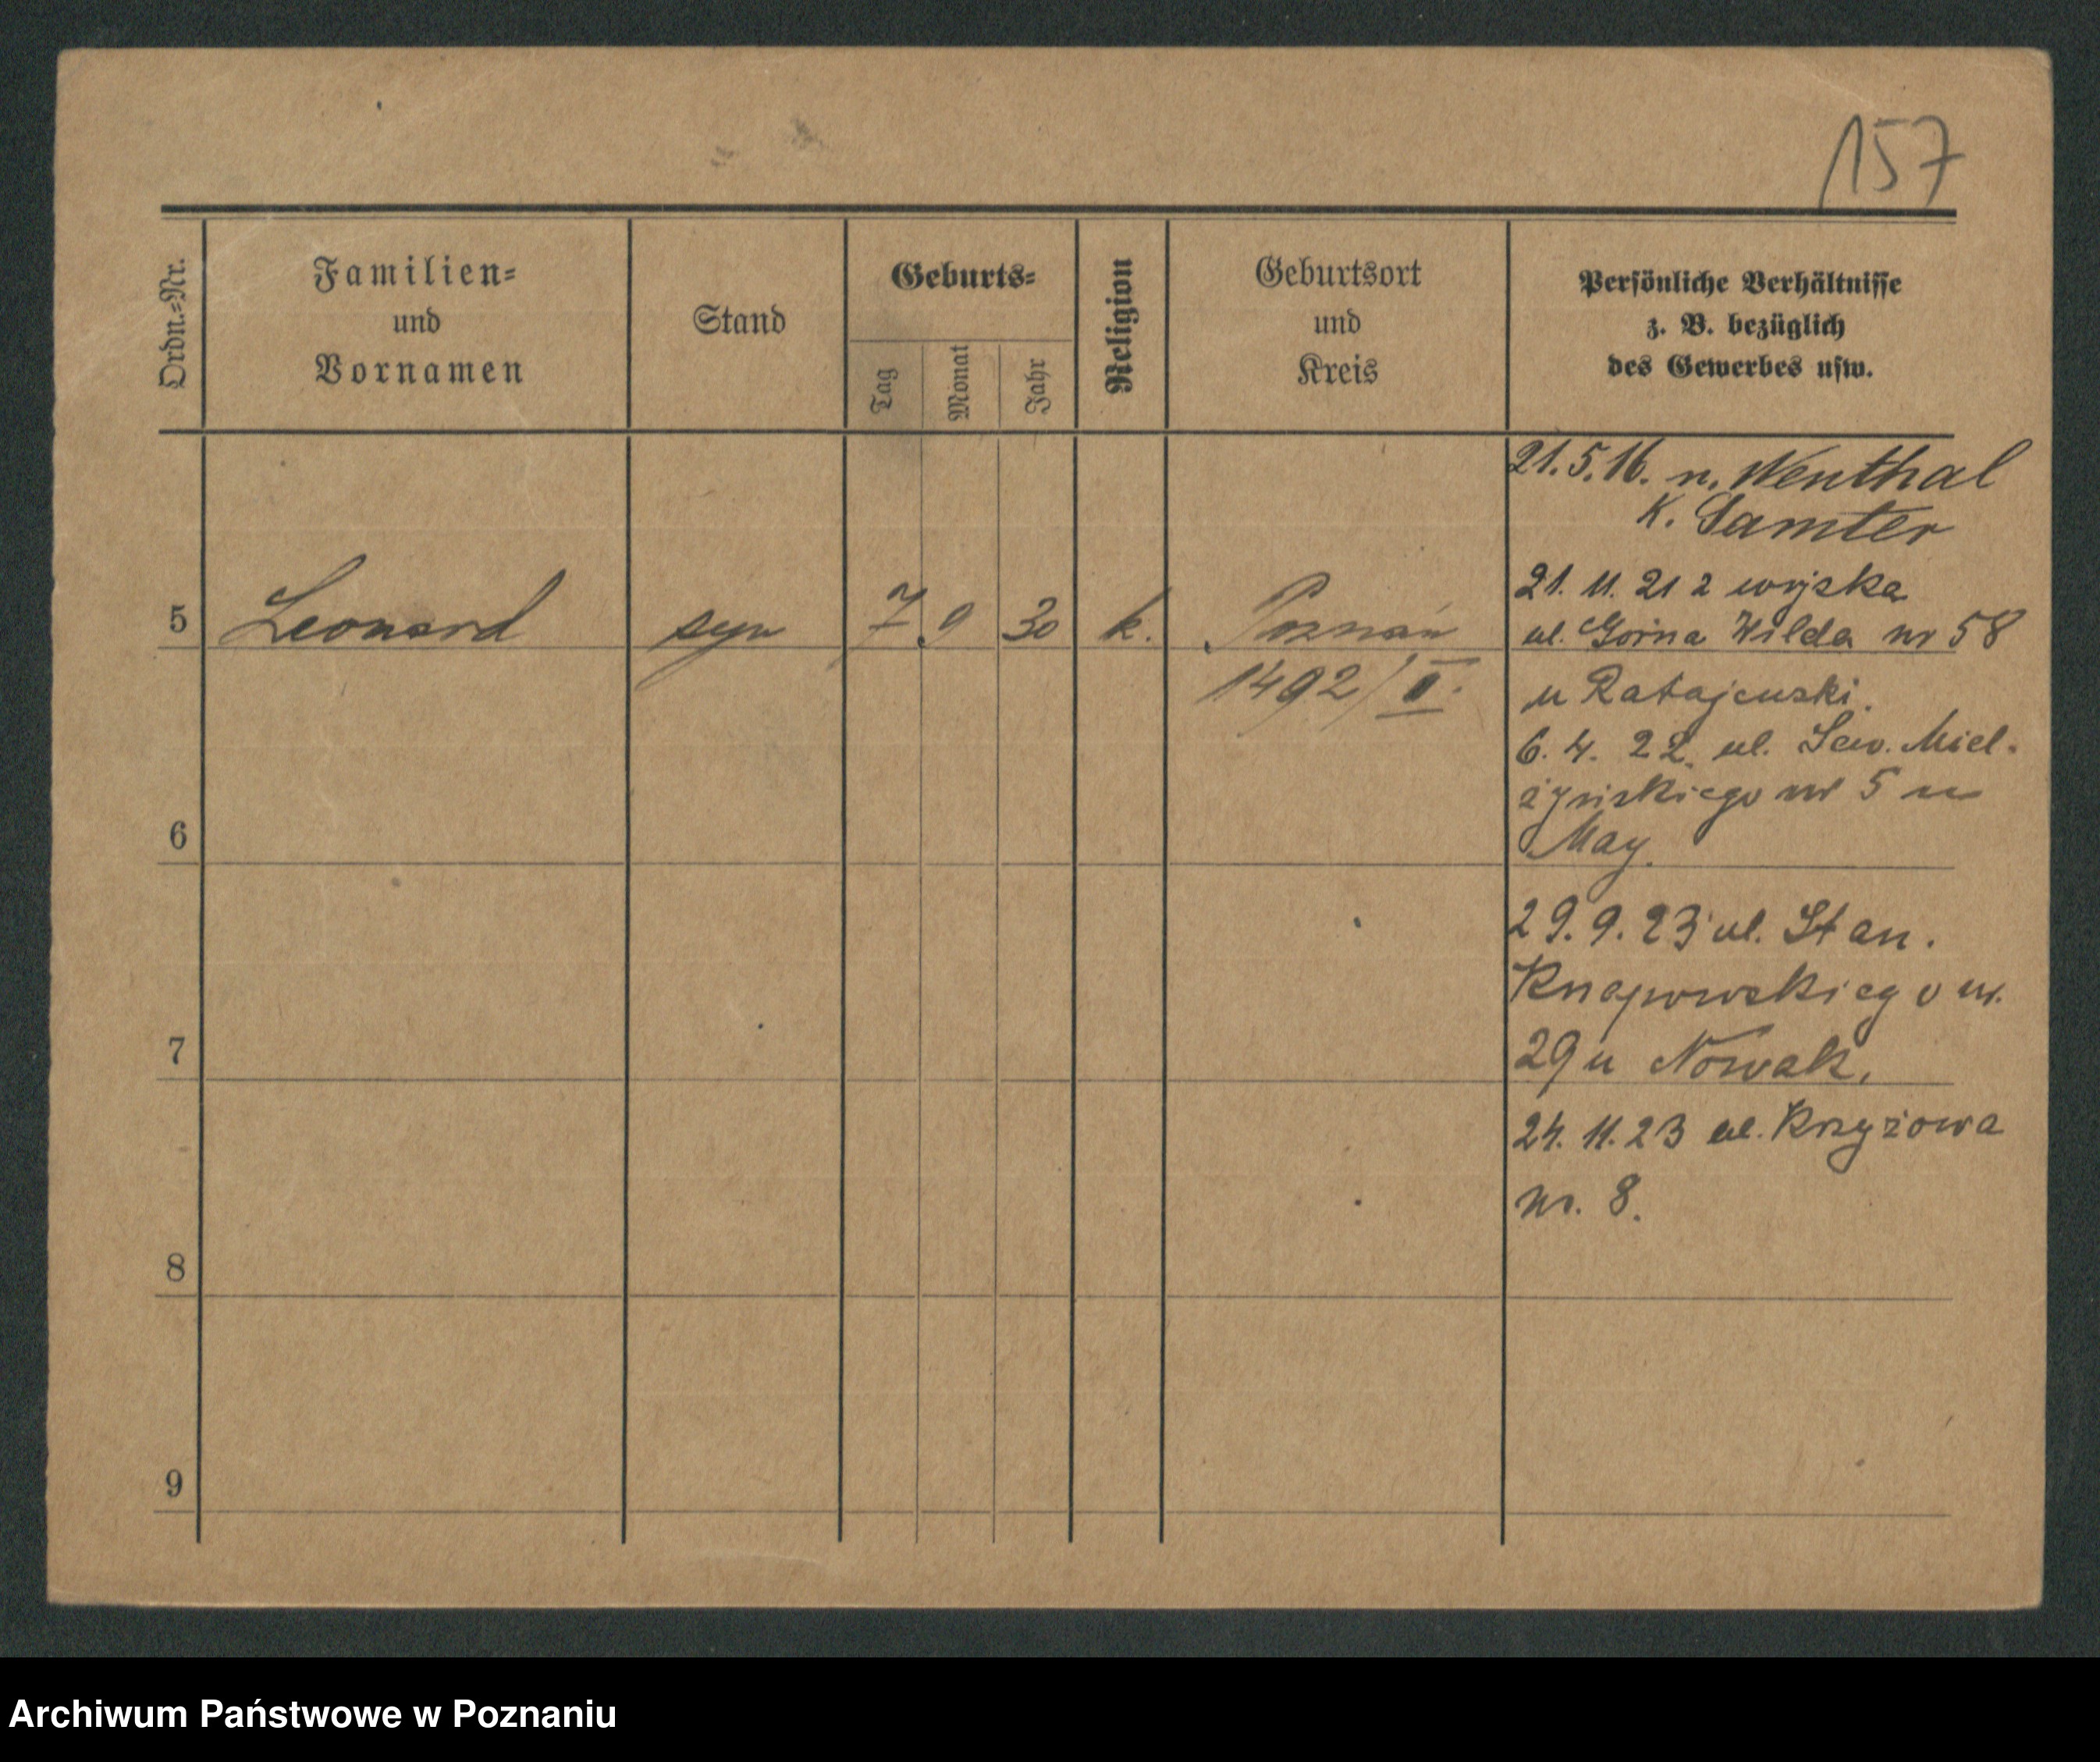 157
Ordn.-Nr.
Familien-
und
Vornamen
Stand
Geburts-
Tag
Monat
Jahr
Religion
Geburtsort
und
Kreis
Persönliche Verhältnisse
z. B. bezüglich
des Gewerbes usw.
5
Leonard
syn
7
9
30
k.
Poznań
1492/II.
21.5.16. n. Wenthal
K. Samter
21. 11. 21 z wojska
ul. Górna Wilda nr 58
u Ratajczaki.
6. 4. 22. ul. Sew. Miel-
żyńskiego nr 5 u
May.
29. 9. 23 ul. Stan.
Knapowskiego nr.
29 u Nowak.
24. 11. 23 ul. Krzyżowa
nr. 8.
6
7
8
9
Archiwum Państwowe w Poznaniu